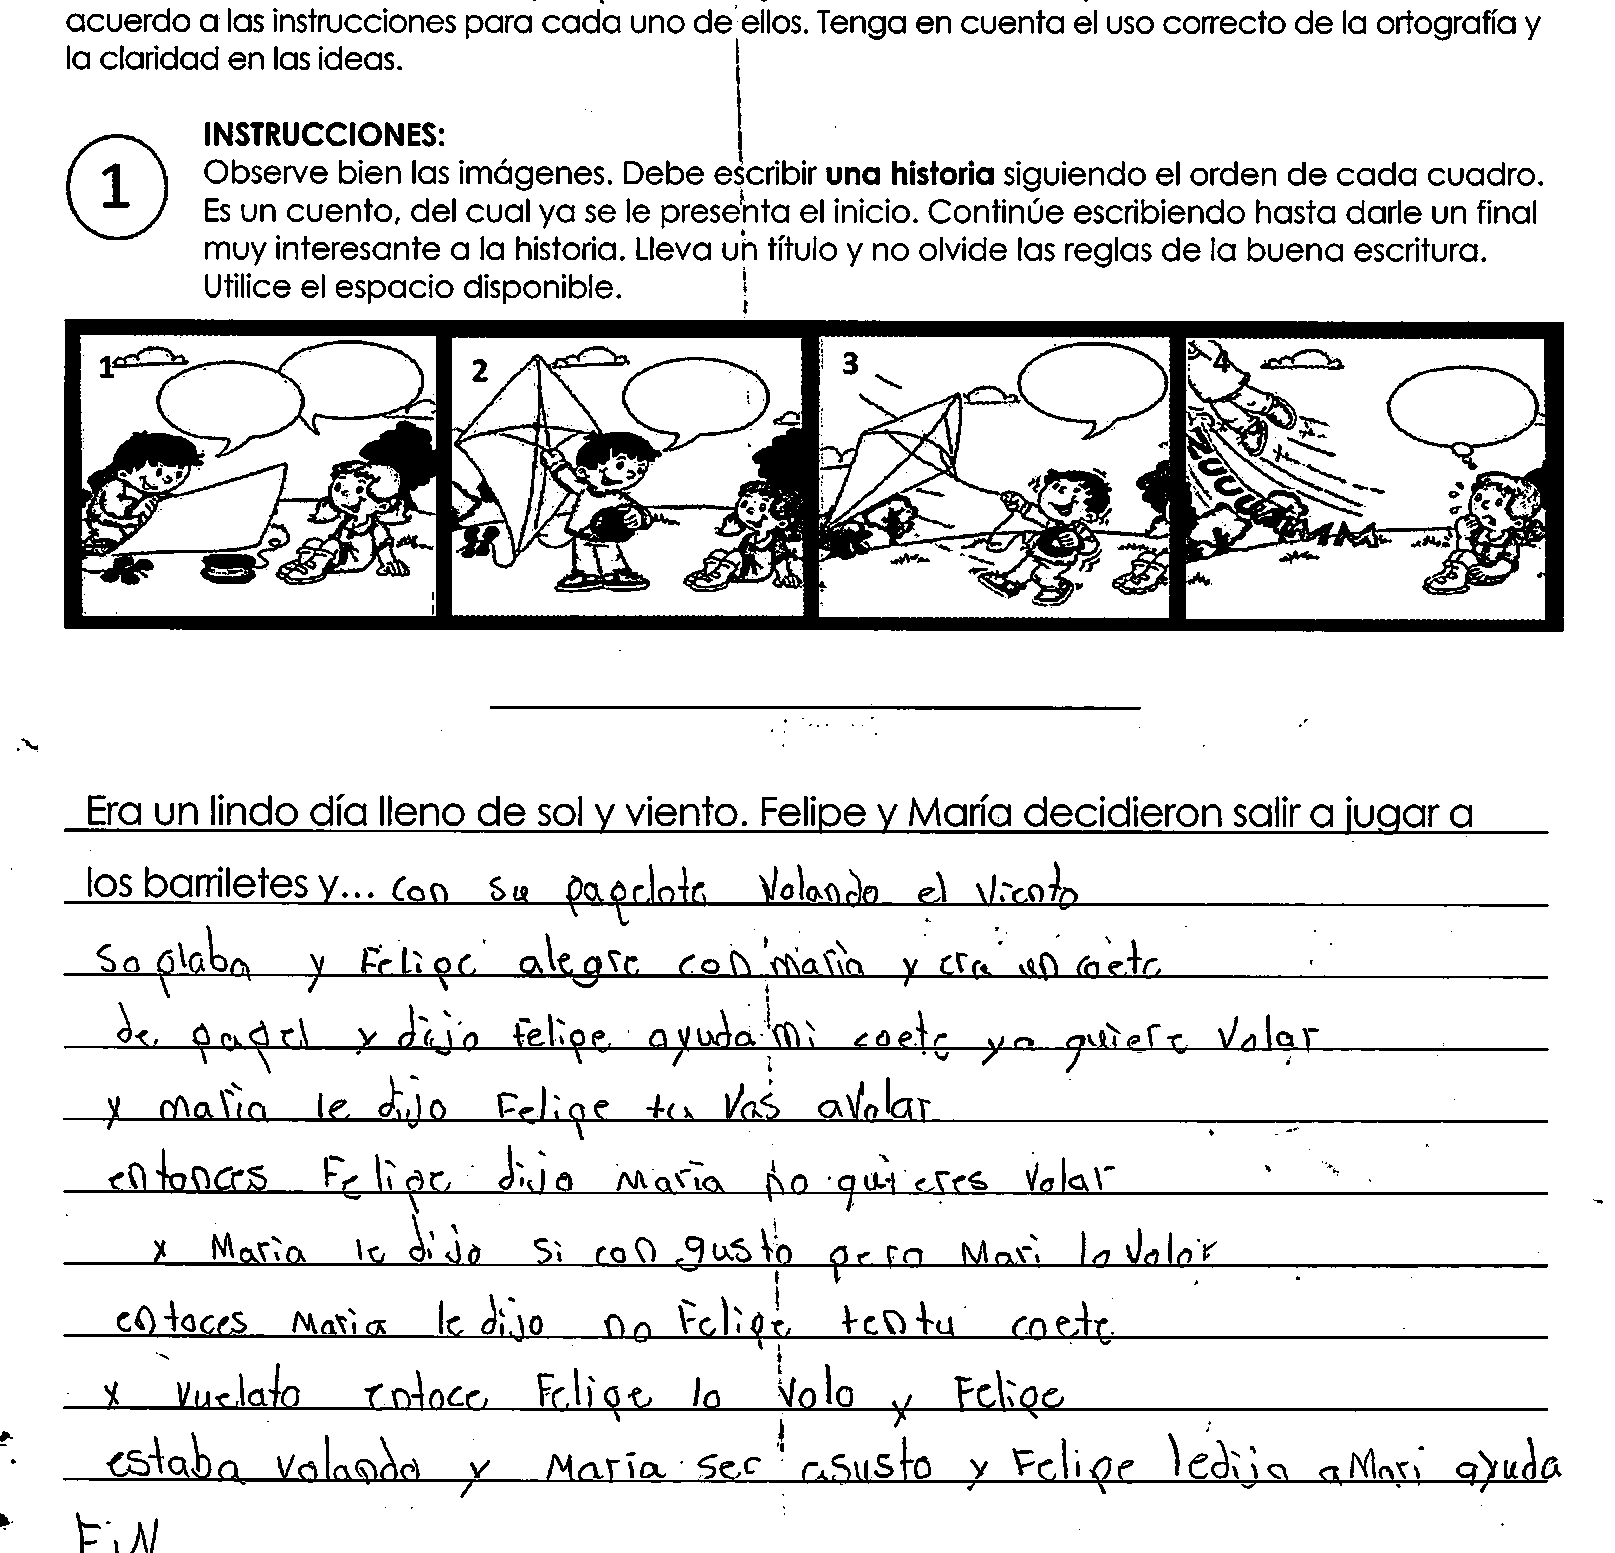 acuerdo a las instrucciones para cada uno de ellos. Tenga en cuenta el uso correcto de la ortografía y
la claridad en las ideas.
1
INSTRUCCIONES:
Observe bien las imágenes. Debe escribir una historia siguiendo el orden de cada cuadro.
Es un cuento, del cual ya se le presenta el inicio. Continúe escribiendo hasta darle un final
muy interesante a la historia. Lleva un título y no olvide las reglas de la buena escritura.
Utilice el espacio disponible.
1 2 3 4
ZUUUMMM
Era un lindo día lleno de sol y viento. Felipe y María decidieron salir a jugar a
los barriletes y... con su papelote volando el viento
soplaba y Felipe alegre con maría y era un coete
de papel y dijo felipe ayuda mi coete ya quiere volar
y maria le dijo Felipe tu vas avolar
entonces Felipe dijo maría no quieres volar
y Maria le dijo si con gusto pero Mari lo volor
entoces Maria le dijo no Felipe ten tu coete
y vuelato entoce Felipe lo volo y Felipe
estaba volando y María ser asusto y Felipe ledijo a Mari ayuda
FiN